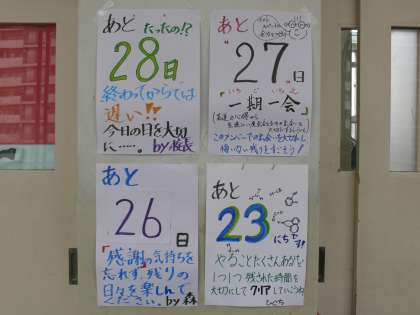 あと
たったの!?
28日
終わってからでは
遅い!!
今日の日を大切
に……。by 校長
あと
"27"日
いちごいちえ
一期一会
このメンバーでの出会いを大切にし
悔いない残りをすごそう!
あと
26日
「感謝の気持ちを
忘れず残りの
日々を楽しんで
ください。by 森
あと
23
にちです!
やることたくさんあるけど
1つ1つ 残された時間を
大切にして クリアしていこうね
ひぐち